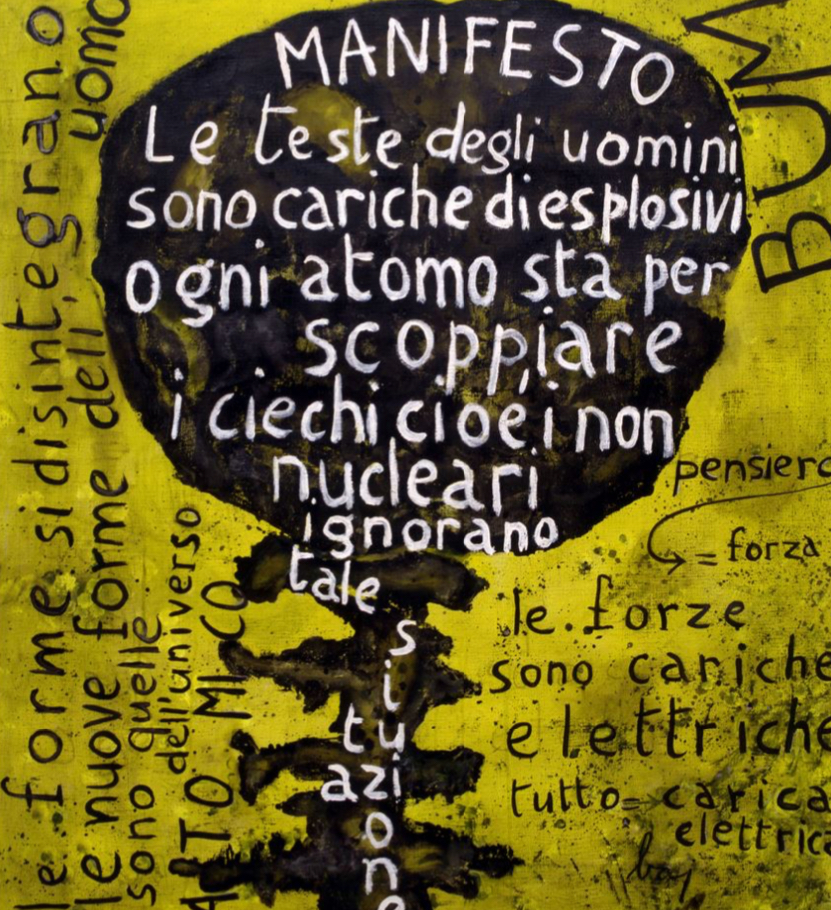 MANIFESTO
Le teste degli uomini
sono cariche di esplosivi
ogni atomo sta per
scoppiare
i ciechi cioe i non
nucleari
ignorano
tale
s
i
tu
azi
o
n
e
le forme si disintegrano
le nuove forme dell'uomo
sono quelle
dell'universo
ATOMICO
BUM
pensiero
= forza
le forze
sono cariche
elettriche
tutto = carica
elettrica
baj